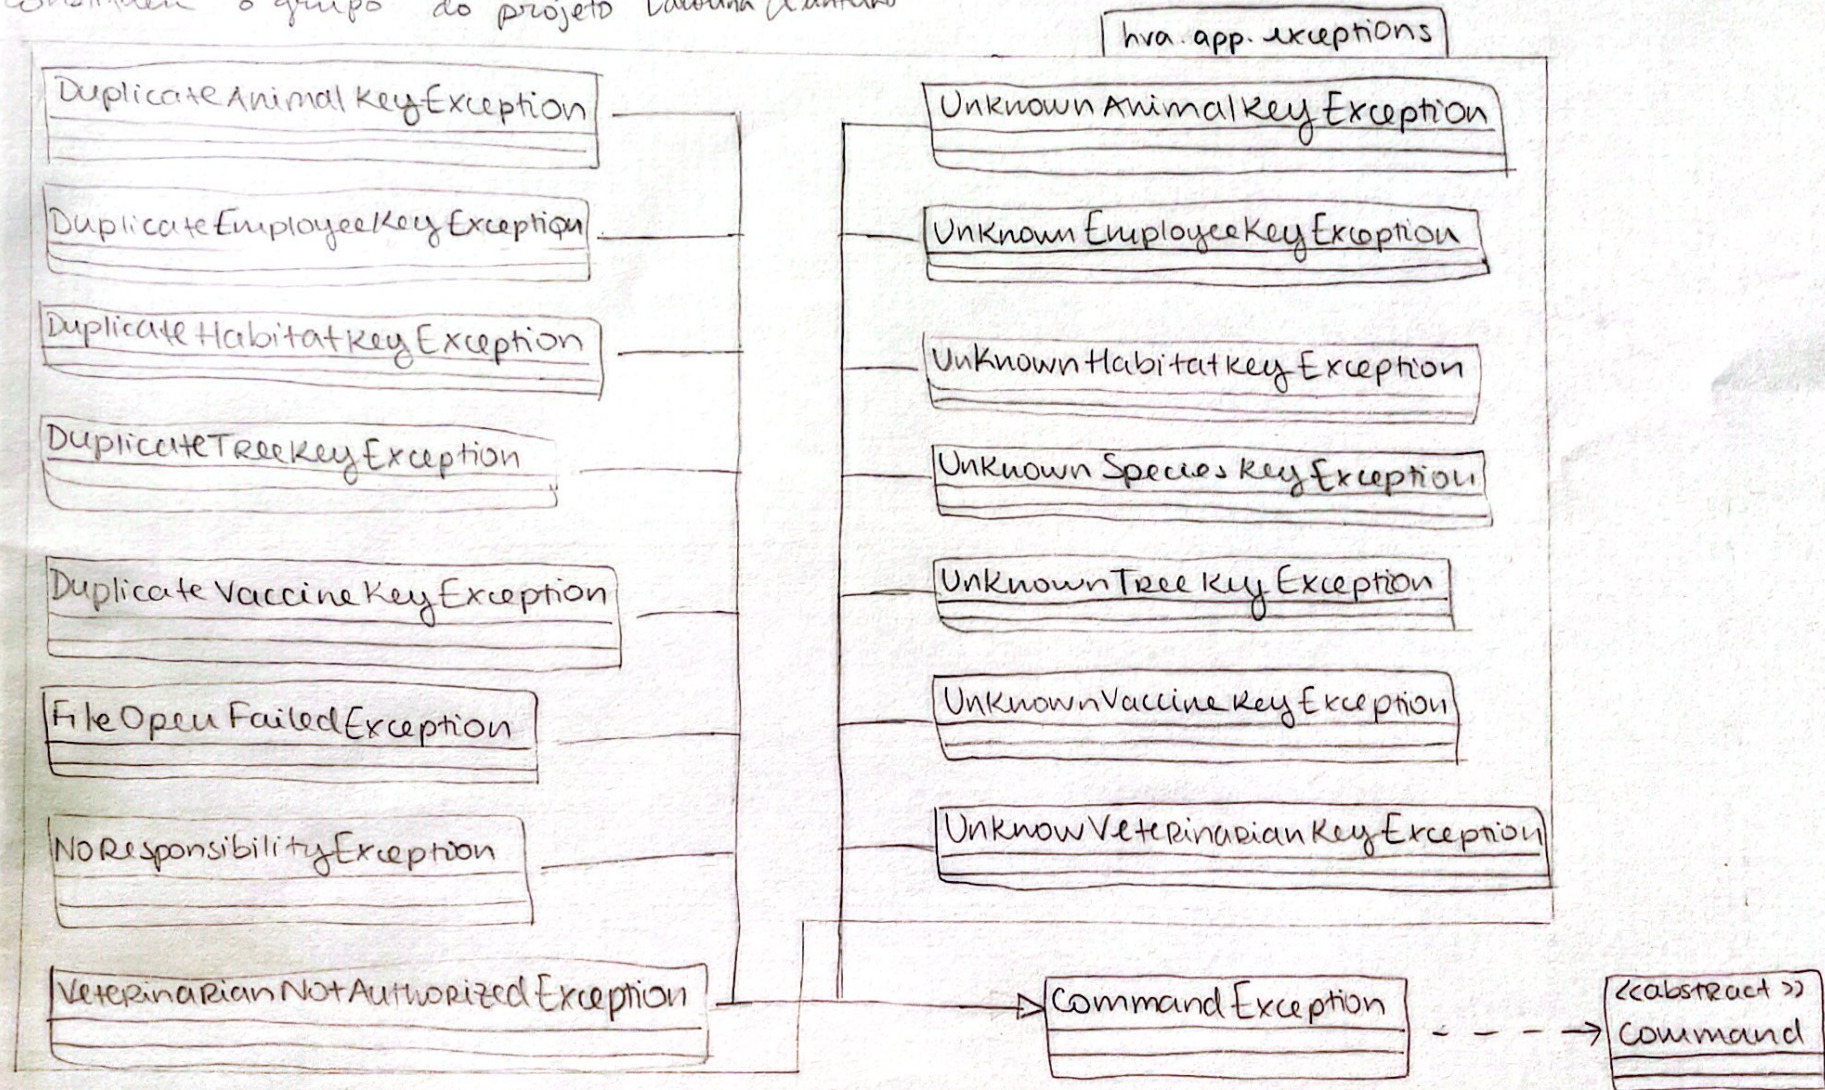 o grupo do projeto
hva.app.exceptions
DuplicateAnimalKeyException
DuplicateEmployeeKeyException
DuplicateHabitatKeyException
DuplicateTreeKeyException
DuplicateVaccineKeyException
FileOpenFailedException
NoResponsibilityException
VeterinarianNotAuthorizedException
UnknownAnimalKeyException
UnknownEmployeeKeyException
UnknownHabitatKeyException
UnknownSpeciesKeyException
UnknownTreeKeyException
UnknownVaccineKeyException
UnknowVeterinarianKeyException
CommandException
<<abstract>>
Command